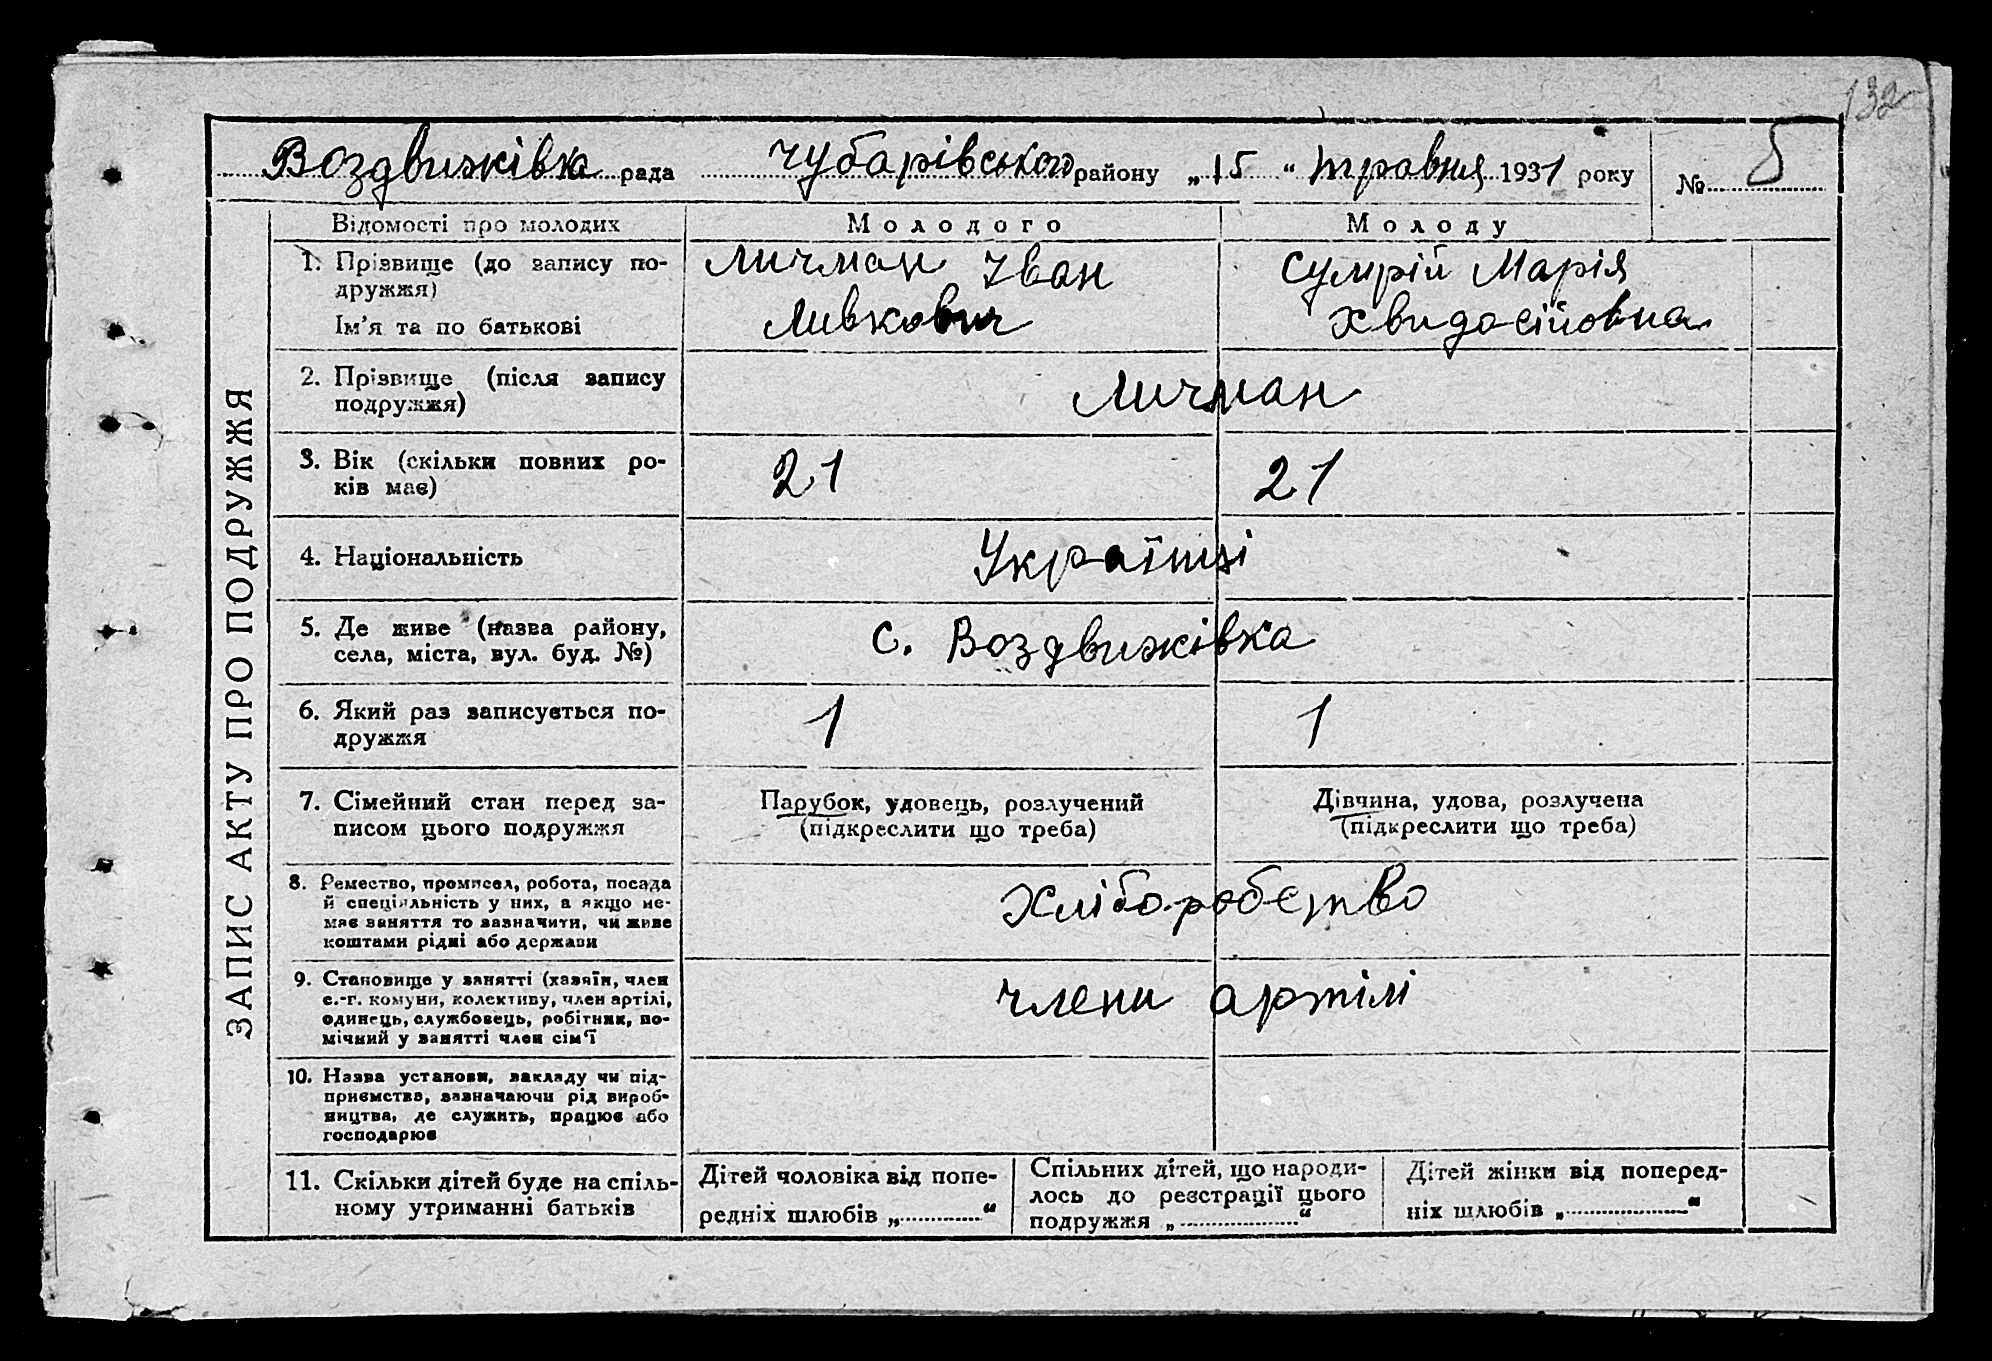 132
Воздвижівка рада Чубарівського району „ 15 “ травня 1931 року № 5
ЗАПИС АКТУ ПРО ПОДРУЖЖЯ
Відомості про молодих
Молодого
Молоду
1. Прізвище (до запису по-
дружжя)
Ім'я та по батькові
Личман Іван
Сумрій Марія
Хвидосіїовна
2. Прізвище (після запису
подружжя)
Личман
3. Вік (скільки повних ро-
ків має)
21
21
4. Національність
Українці
5. Де живе (назва району,
села, міста, вул. буд. №)
с. Воздвижівка
6. Який раз записується по-
дружжя
1
1
7. Сімейний стан перед за-
писом цього подружжя
Парубок, удовець, розлучений
(підкреслити що треба)
Дівчина, удова, розлучена
(підкреслити що треба)
8. Ремество, промисел, робота, посада
й спеціяльність у них, а якщо не-
має заняття то зазначити, чи живе
коштами рідні або держави
Хліборобство
9. Становище у занятті (хазяїн, член
с.-г. комуни, колективу, член артілі,
одинець, службовець, робітник, по-
мічний у занятті член сім'ї
члени артілі
10. Назва установи, закладу чи під-
приємства, зазначаючи рід вироб-
ництва, де служить, працює або
господарює
11. Скільки дітей буде на спіль-
ному утриманні батьків
Дітей чоловіка від попе-
редніх шлюбів „ “
Спільних дітей, що народи-
лось до реєстрації цього
подружжя „ “
Дітей жінки від поперед-
ніх шлюбів „ “